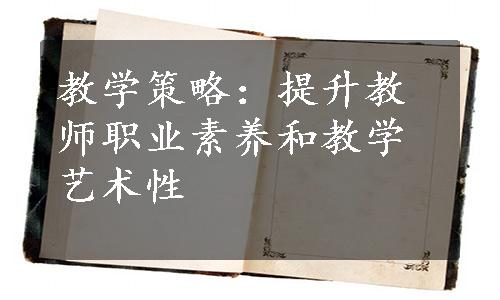 教学策略：提升教
师职业素养和教学
艺术性